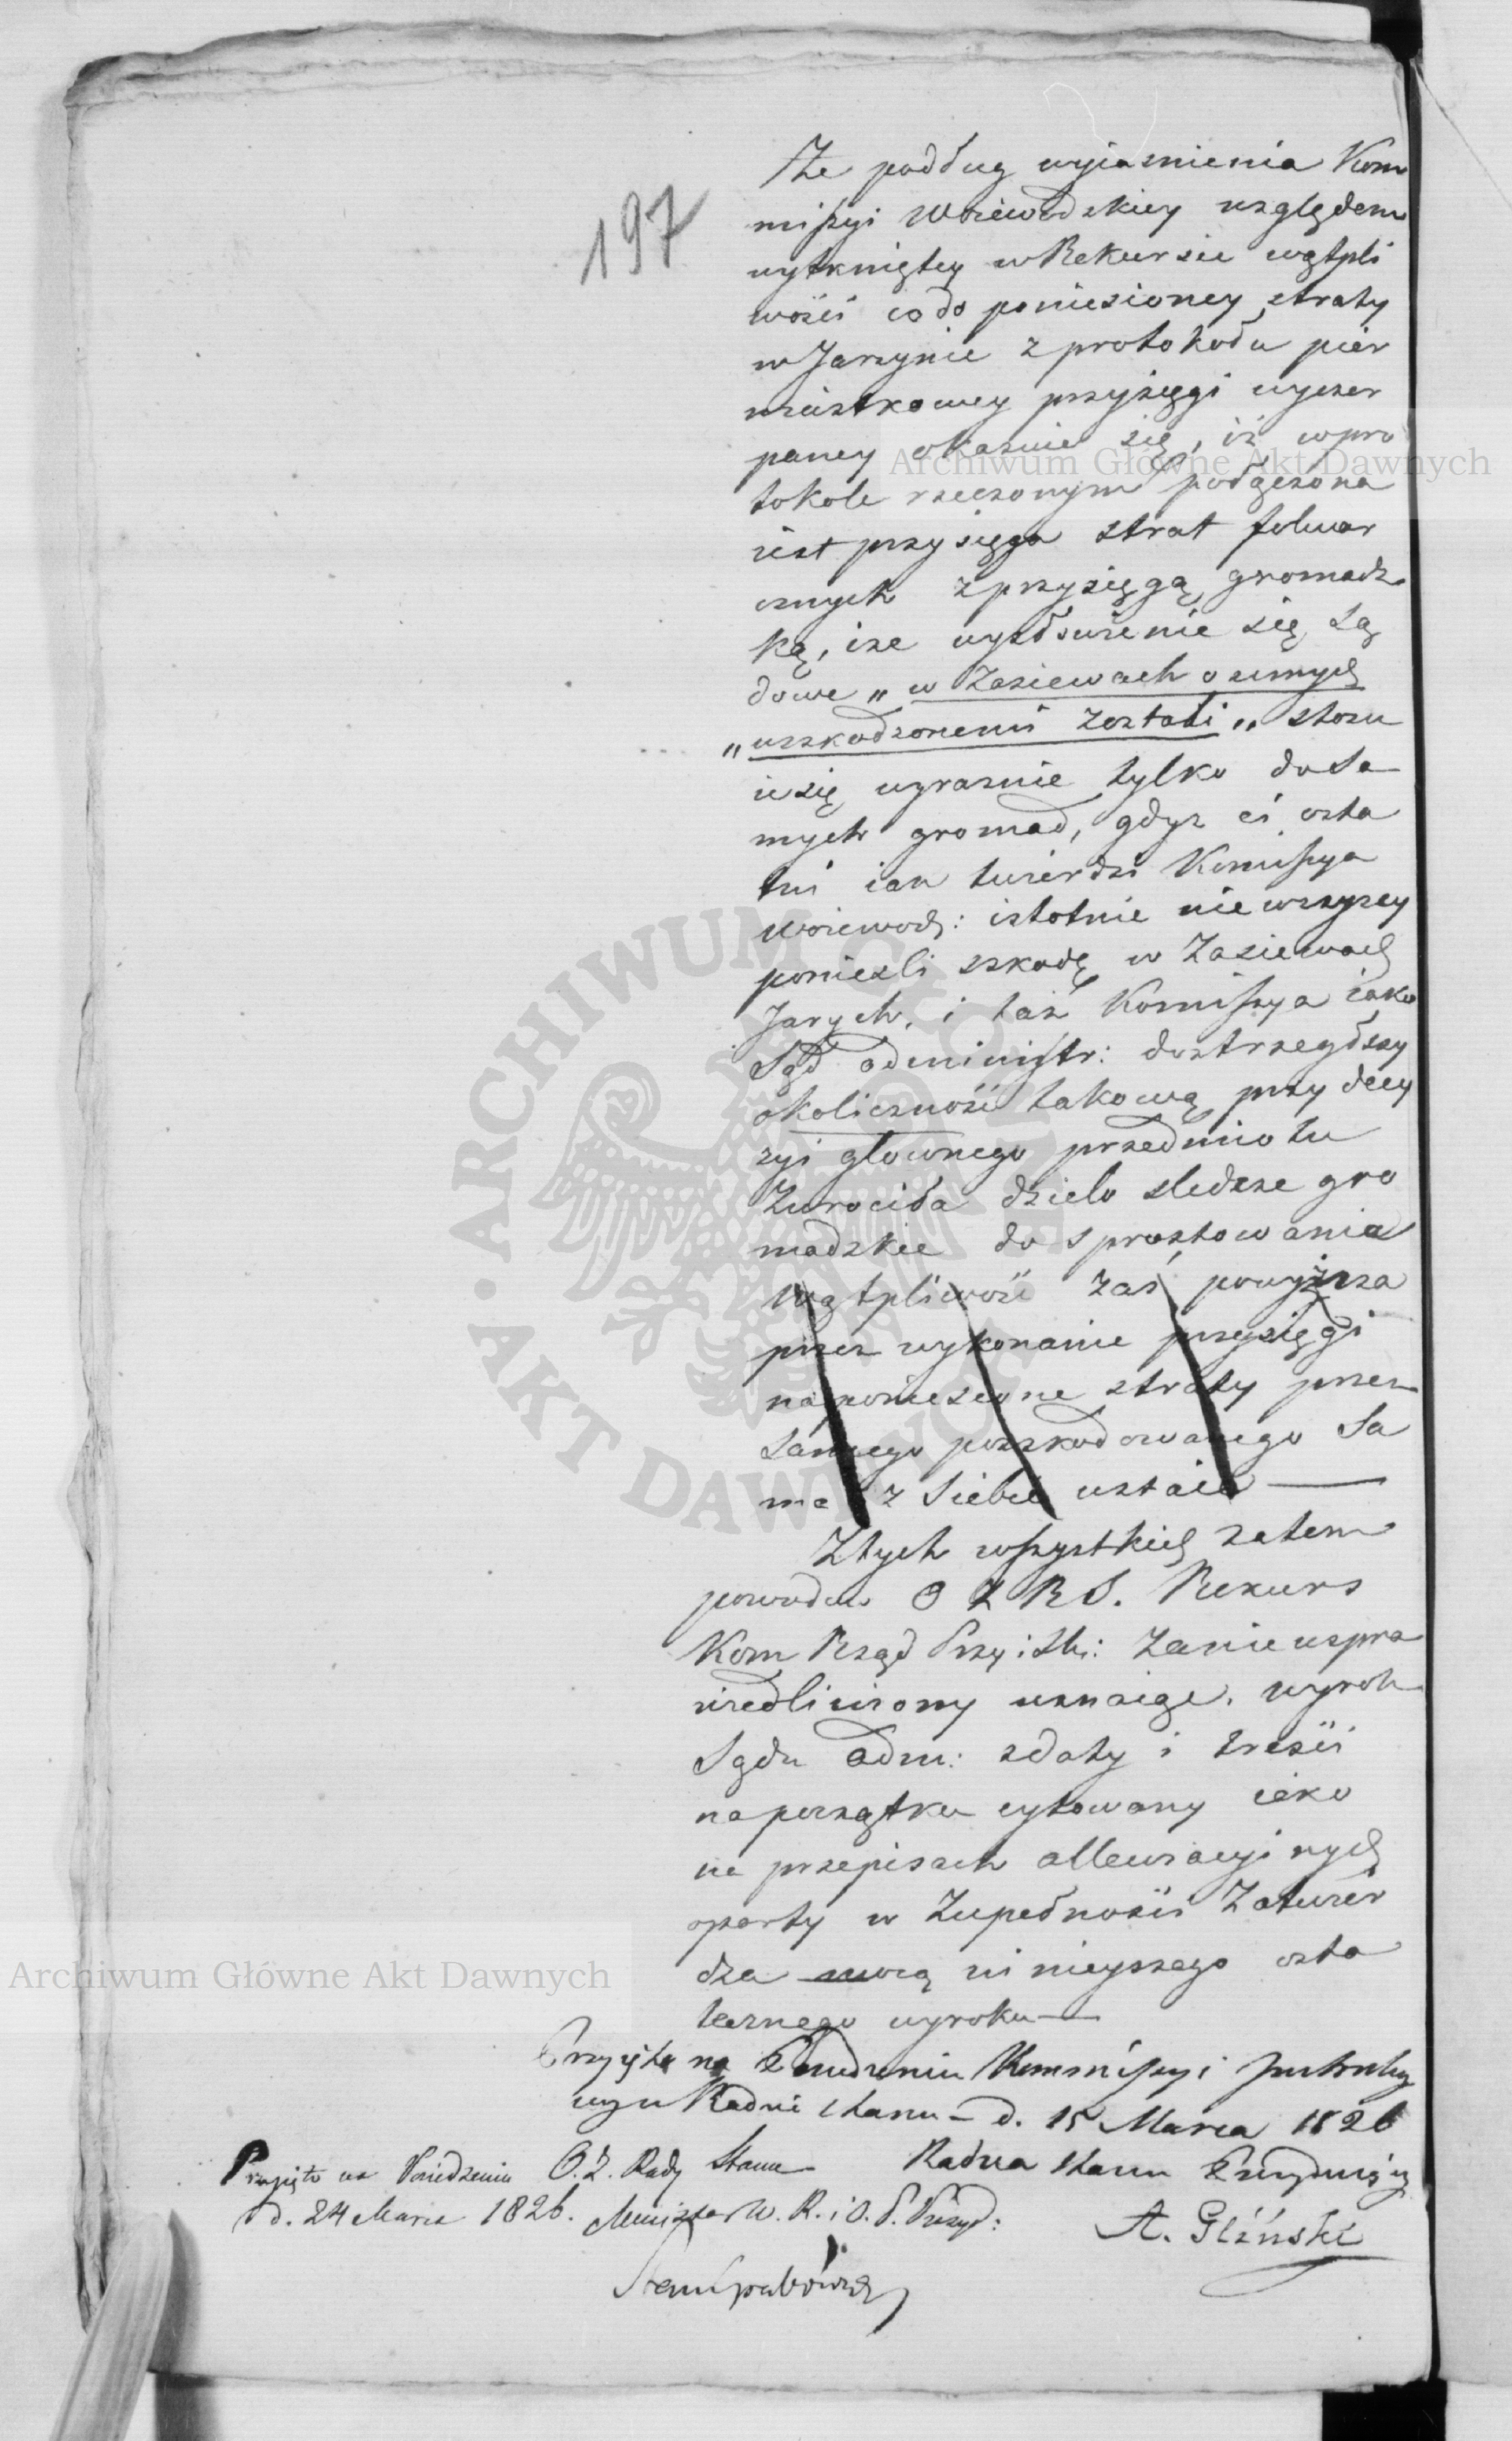 197
Że podług wyiasnienia Kom
mißyi Woiewodzkiey względem
wytkniętey w Rekursie wątpli
wości co do poniesioney straty
w Jarzynie z protokołu pier
wiastkowey przysięgi wyczer
paney okazuie się, iż w pro
tokole rzeczonym połączona
iest przysięga strat folwar
cznych z przysięgą gromadz
ką, i że wysłowienie się Są
dowe „w Zasiewach ozimych
„uszkodzonemi zostali„ stosu
ie się wyraźnie tylko do sa
mych gromad, gdyż ci osta
tni iak twierdzi Komißya
Woiewodz: istotnie nie wszyscy
ponieśli szkodę w Zasiewach
Jarych, i taż Komißya iako
Sąd administr: dostrzegłszy
okoliczność takową przy decy
zyi głownego przedmiotu
Zwrociła dzieło śledcze gro
madzkie do sprostowania
Wątpliwość zaś powyższa
przez wykonanie przysięgi
na poniesione straty przez
samego poszkodowanego sa
ma z siebie ustaie —
Z tych wszystkich zatem
powodów O Z R S. Rekurs
Kom Rząd Przy i Sk: za nieuspra
wiedliwiony uznaiąc, wyrok
Sądu adm: z daty i treści
na początku cytowany iako
na przepisach allewiacyinych
oparty w Zupełności Zatwier
dza mocą ninieyszego osta
tecznego wyroku —
Przyięto na Posiedzeniu Kommißyi Instrukcy
Radzie Stanu – d. 15 Marca 1826
Radca Stanu Prezyduiący
A. Gliński
Przyięto na Posiedzeniu O. Z. Rady Stanu
d. 24 Marca 1826. Minister W. R. i O. P. Prezyd:
Stan Grabowski
Archiwum Główne Akt Dawnych
Archiwum Główne Akt Dawnych
ARCHIWUM GŁÓWNE
AKT DAWNYCH